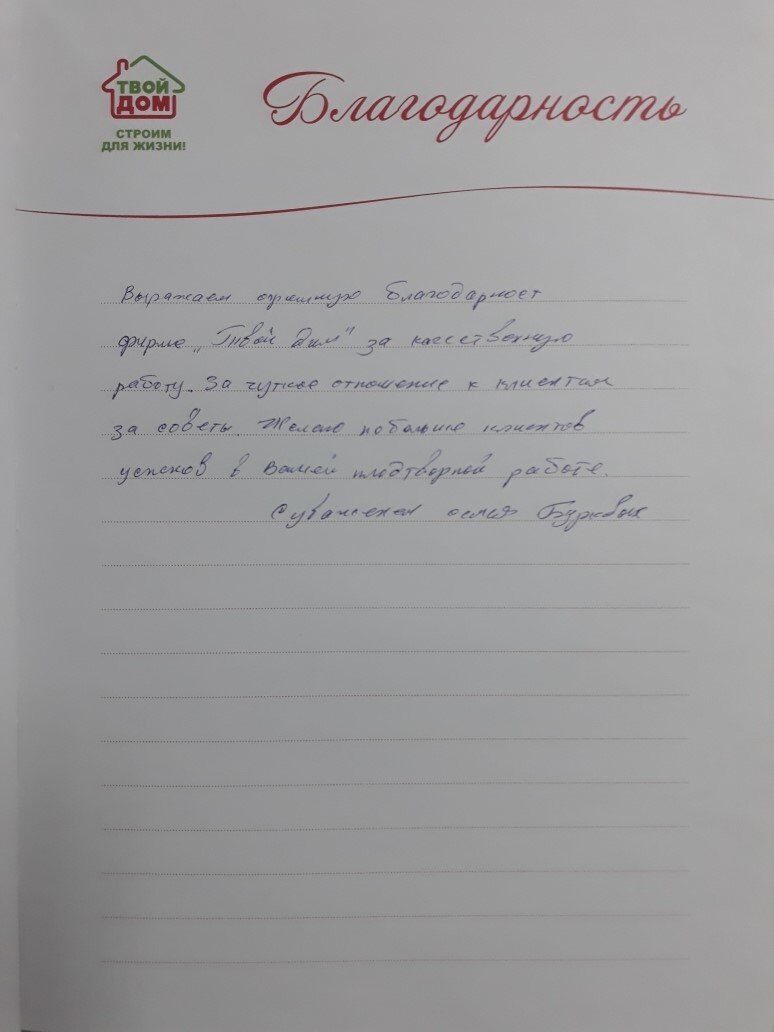 ТВОЙ
ДОМ
СТРОИМ
ДЛЯ ЖИЗНИ!
Благодарность
Выражаем огромную благодарност
фирме „Твой дом" за качественную
работу. За чуткое отношение к клиентам
за советы. Желаю побольше клиентов
успехов в вашей плодтворной работе.
С уважением семья